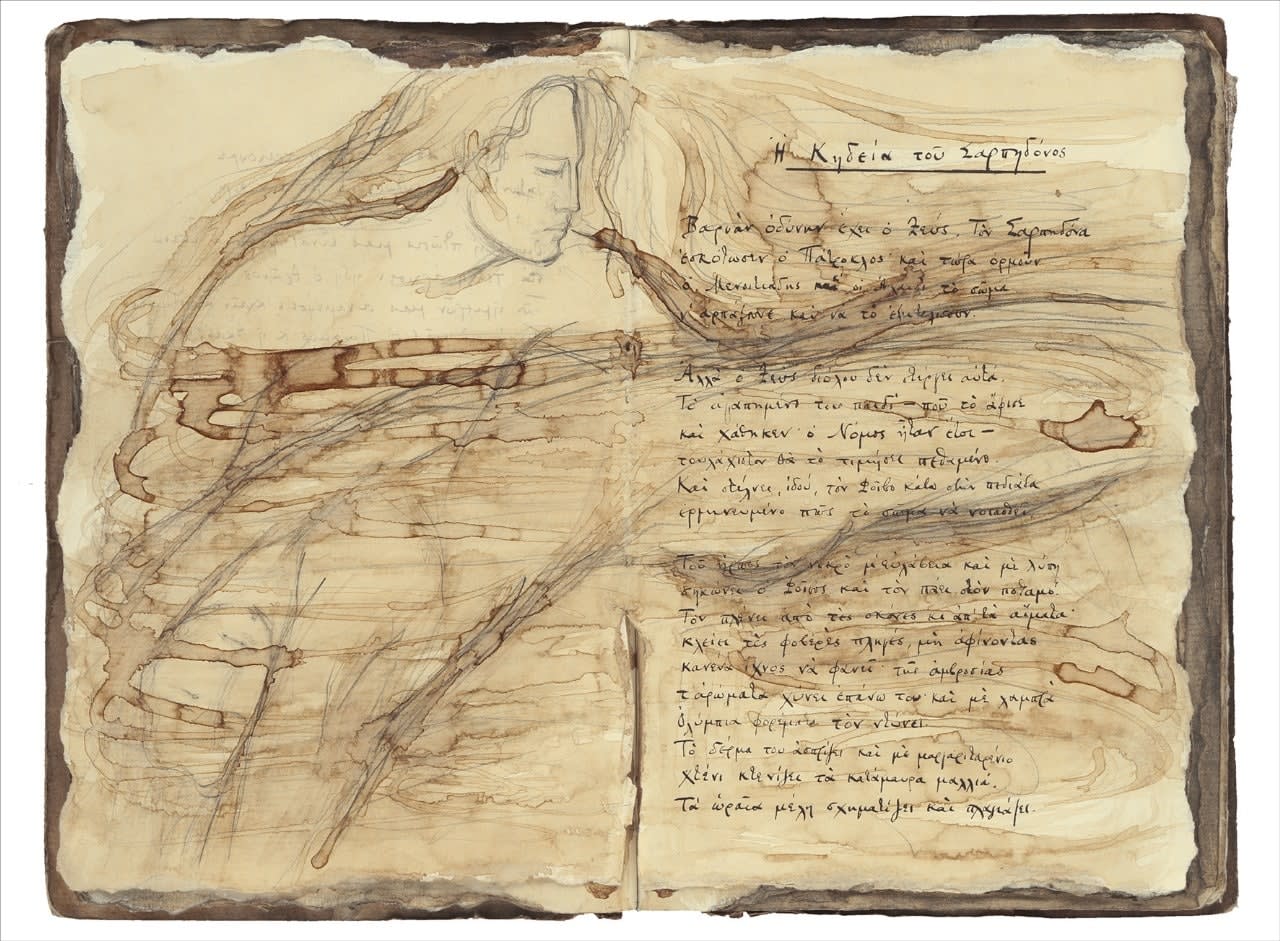 Ἡ Κηδεία τοῦ Σαρπηδόνος
Βαρυὰν ὀδύνην ἔχει ὁ Ζεύς. Τὸν Σαρπηδόνα
ἐσκότωσεν ὁ Πάτροκλος καὶ τώρα ὁρμοῦν
ὁ Μενοιτιάδης καὶ οἱ Ἀχαιοὶ τὸ σῶμα
ν' ἁρπάξουνε καὶ νὰ τὸ ἐξευτελίσουν.
Ἀλλὰ ὁ Ζεὺς διόλου δὲν στέργει αὐτά.
Τὸ ἀγαπημένο του παιδὶ — ποὺ τὸ ἄφισε
καὶ χάθηκεν· ὁ Νόμος ἦταν ἔτσι —
τουλάχιστον θὰ τὸ τιμήσει πεθαμένο.
Καὶ στέλνει, ἰδού, τὸν Φοῖβο κάτω στὴν πεδιάδα
ἑρμηνευμένο πῶς τὸ σῶμα νὰ νοιασθεῖ.
Τοῦ ἥρωος τὸν νεκρὸ μ' εὐλάβεια καὶ μὲ λύπη
σηκώνει ὁ Φοῖβος καὶ τὸν πάει στὸν ποταμό.
Τὸν πλένει ἀπὸ τὲς σκόνες κι ἀπ' τὰ αἵματα·
κλείει τὲς φοβερὲς πληγές, μὴ ἀφίνοντας
κανένα ἴχνος νὰ φανεῖ· τῆς ἀμβροσίας
τ' ἀρώματα χύνει ἐπάνω του· καὶ μὲ λαμπρὰ
Ὀλύμπια φορέματα τὸν ντύνει.
Τὸ δέρμα του ἀσπρίζει· καὶ μὲ μαργαριταρένιο
χτένι κτενίζει τὰ κατάμαυρα μαλλιά.
Τὰ ὡραῖα μέλη σχηματίζει καὶ πλαγιάζει.